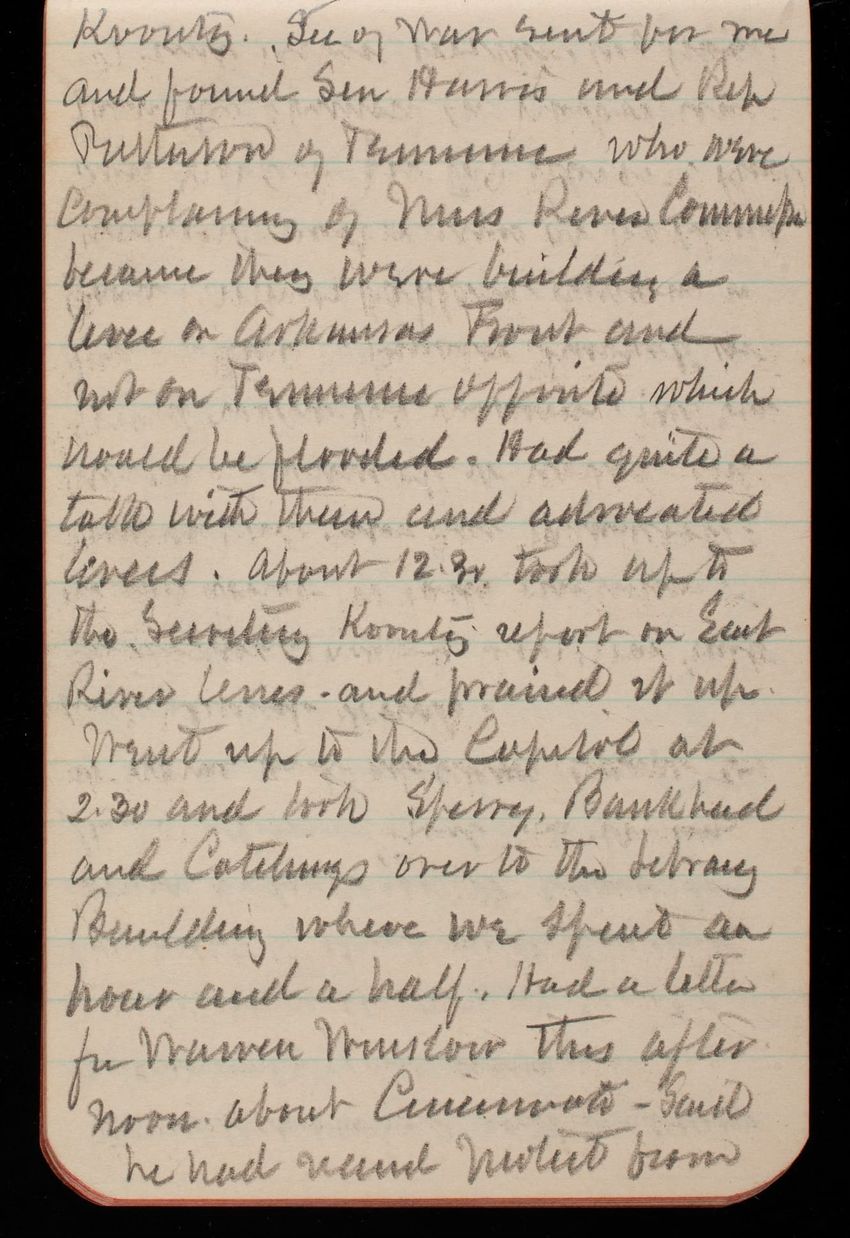 Koontz. Sec of War sent for me
and found Sen Harris and Rep
Patterson of Tennessee who were
complaining of Miss River Commission
because they were building a
levee on Arkansas Front and
not on Tennessee opposite which
would be flooded. Had quite a
talk with them and advocated
levees. About 12.30 took up to
the Secretary Koontz report on East
River lines - and praised it up.
Went up to the Capitol at
2.30 and took Sperry, Bankhead
and Catchings over to the Library
Building where we spent an
hour and a half. Had a letter
fr Warren Winslow this after
noon. about Cincinnati - Said
he had recund protest from